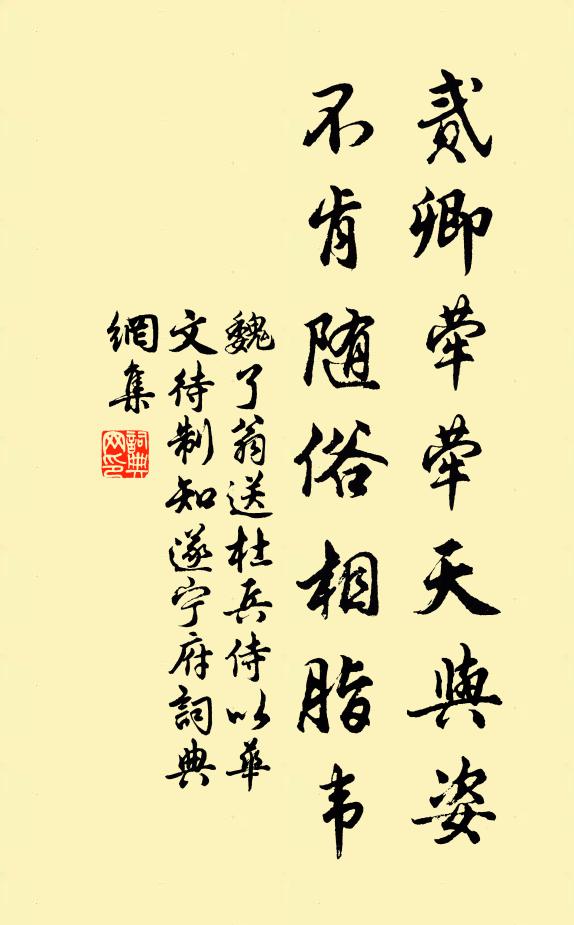 貳卿犖犖天與姿
不肯随俗相脂韦
魏了翁送杜兵侍以華
文待制知遂宁府詞典
網集
詞典
网印